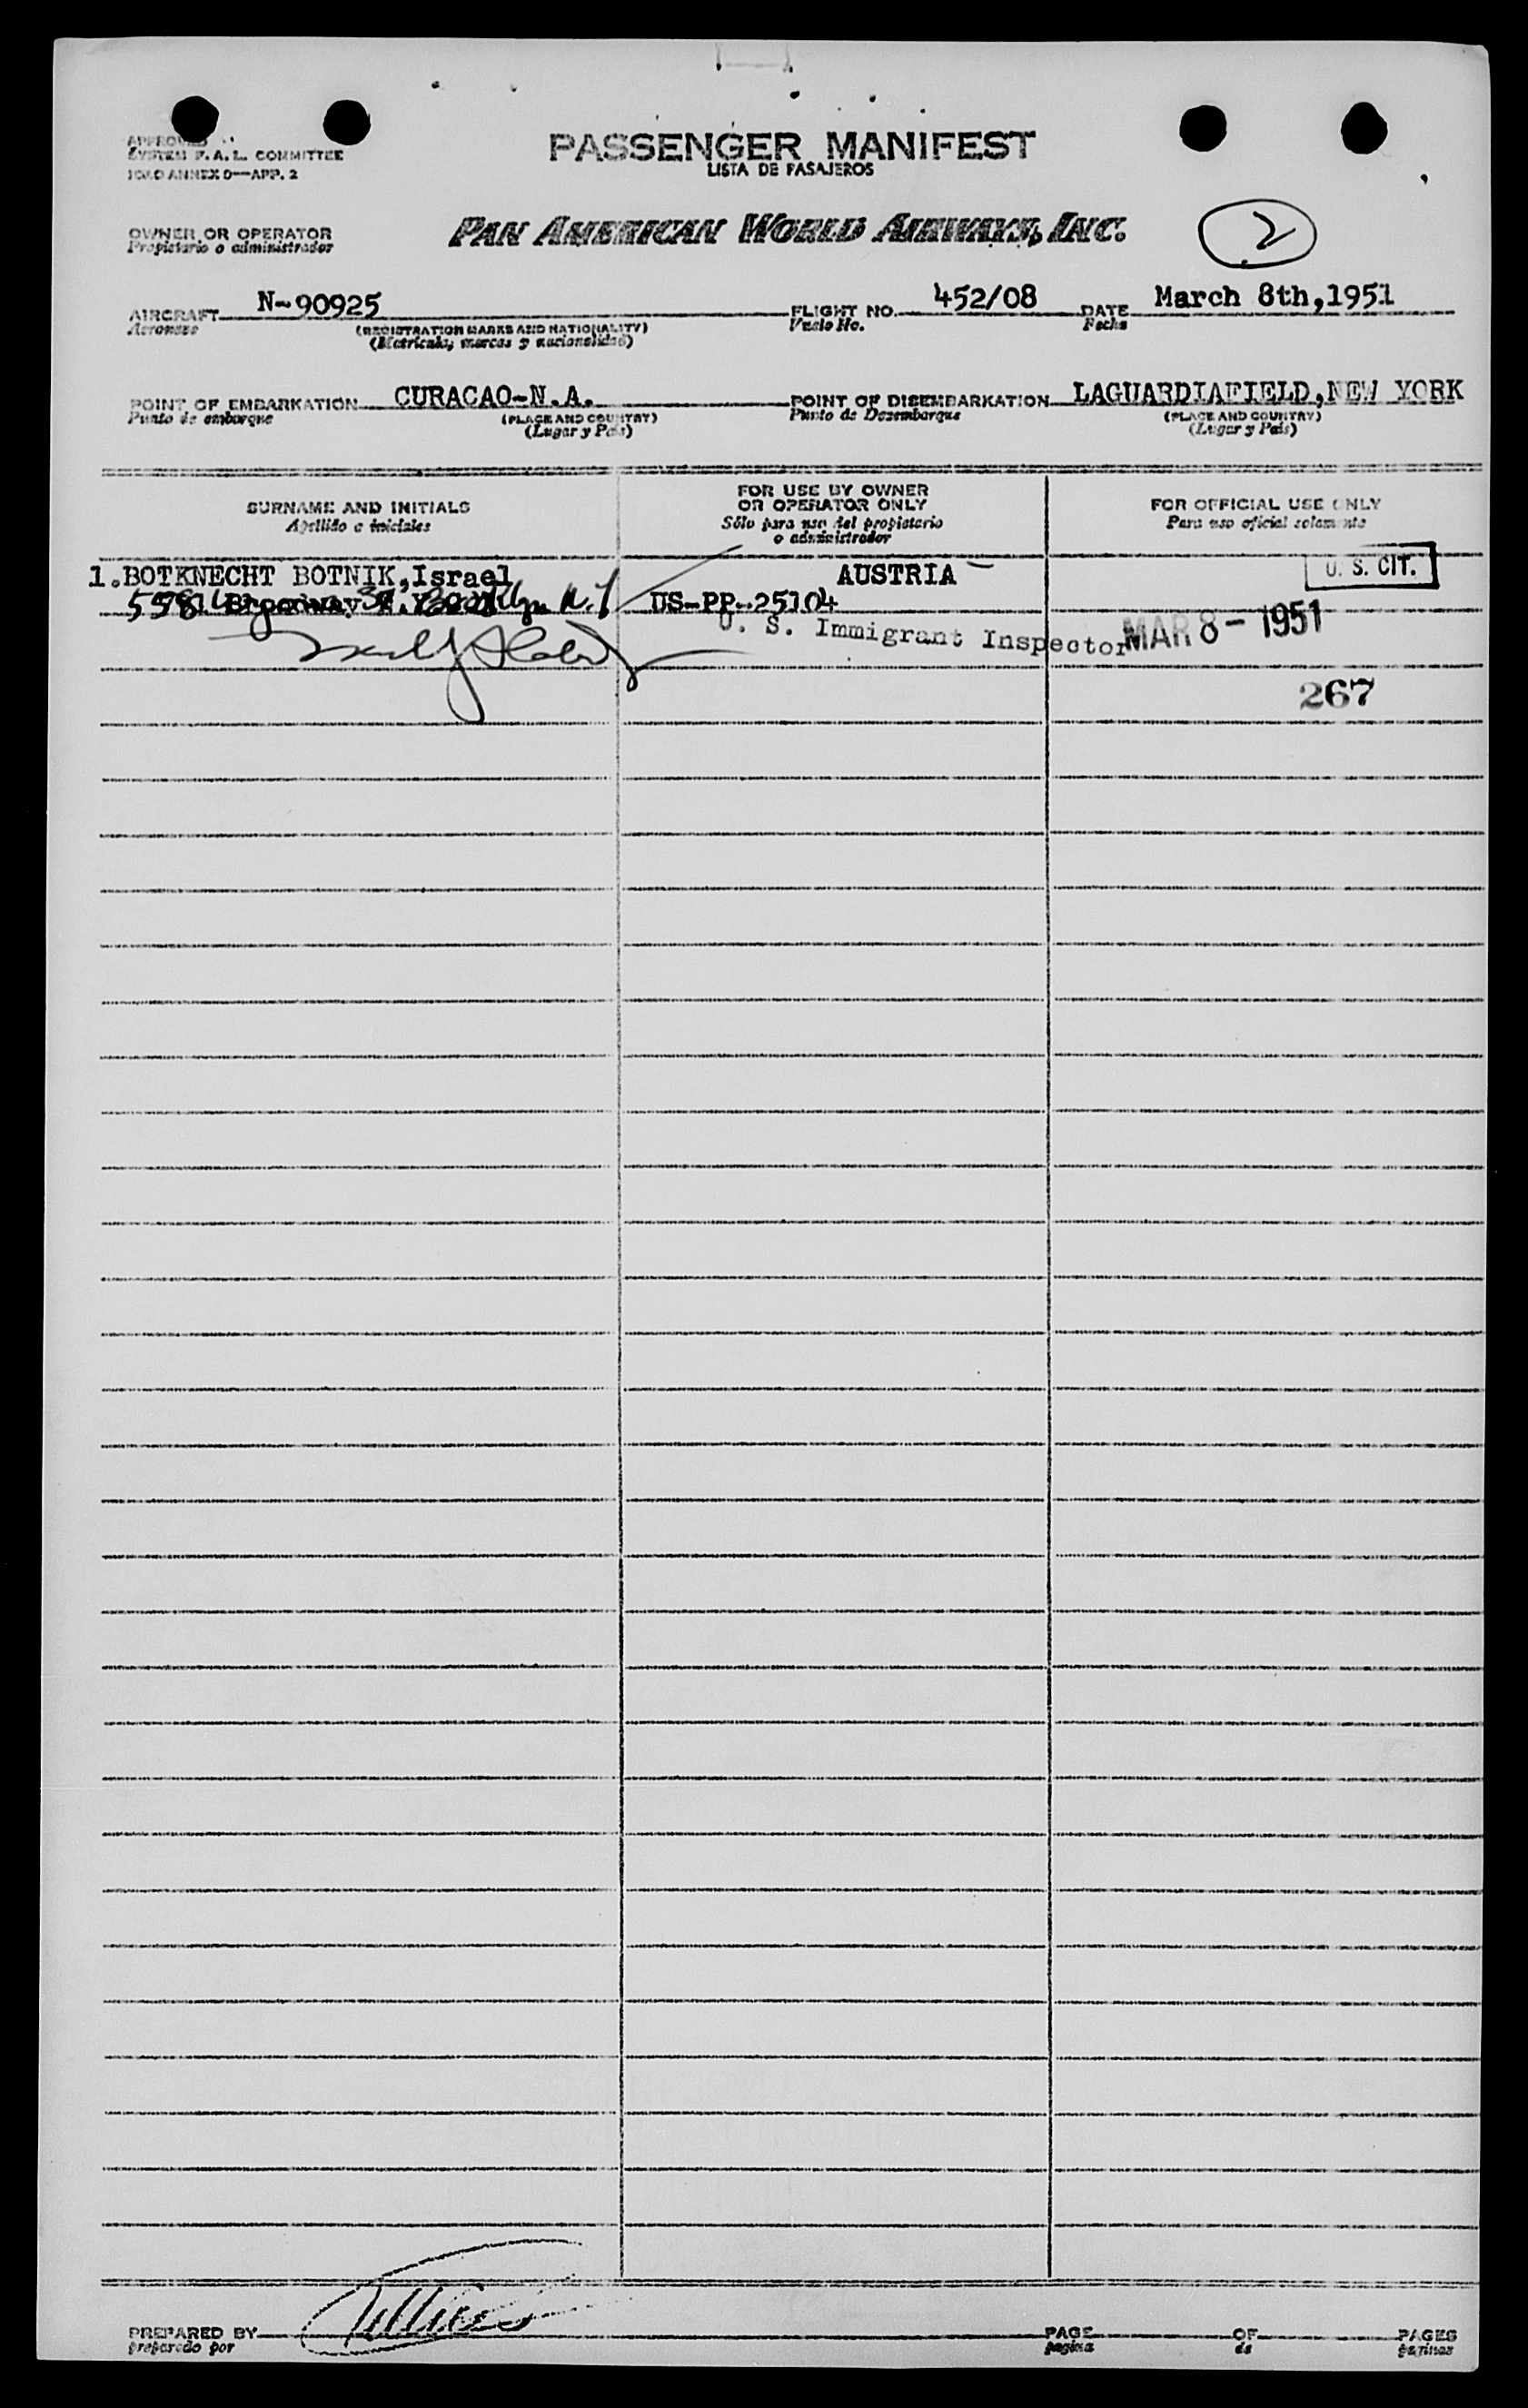 APPROVED
SYSTEM F.A.L. COMMITTEE
ICAO ANNEX 9—APP. 2
PASSENGER MANIFEST
LISTA DE PASAJEROS
OWNER OR OPERATOR
Propietario o administrador
PAN AMERICAN WORLD AIRWAYS, INC.
2
AIRCRAFT N-90925
Aeronave
(REGISTRATION MARKS AND NATIONALITY)
(Matricula, marcas y nacionalidad)
FLIGHT NO. 452/08
Vuelo No.
DATE March 8th,1951
Fecha
POINT OF EMBARKATION CURACAO-N.A.
Punto de embarque
(PLACE AND COUNTRY)
(Lugar y Pais)
POINT OF DISEMBARKATION LAGUARDIAFIELD,NEW YORK
Punto de Desembarque
(PLACE AND COUNTRY)
(Lugar y Pais)
SURNAME AND INITIALS
Apellido e iniciales
FOR USE BY OWNER
OR OPERATOR ONLY
Sólo para uso del propietario
o administrador
FOR OFFICIAL USE ONLY
Para uso oficial solamente
1.BOTKNECHT BOTNIK,Israel AUSTRIA U. S. CIT.
N.Y US-PP-25104
U. S. Immigrant Inspector MAR 8 - 1951
267
PREPARED BY
preparado por
PAGE OF PAGES
pagina de paginas